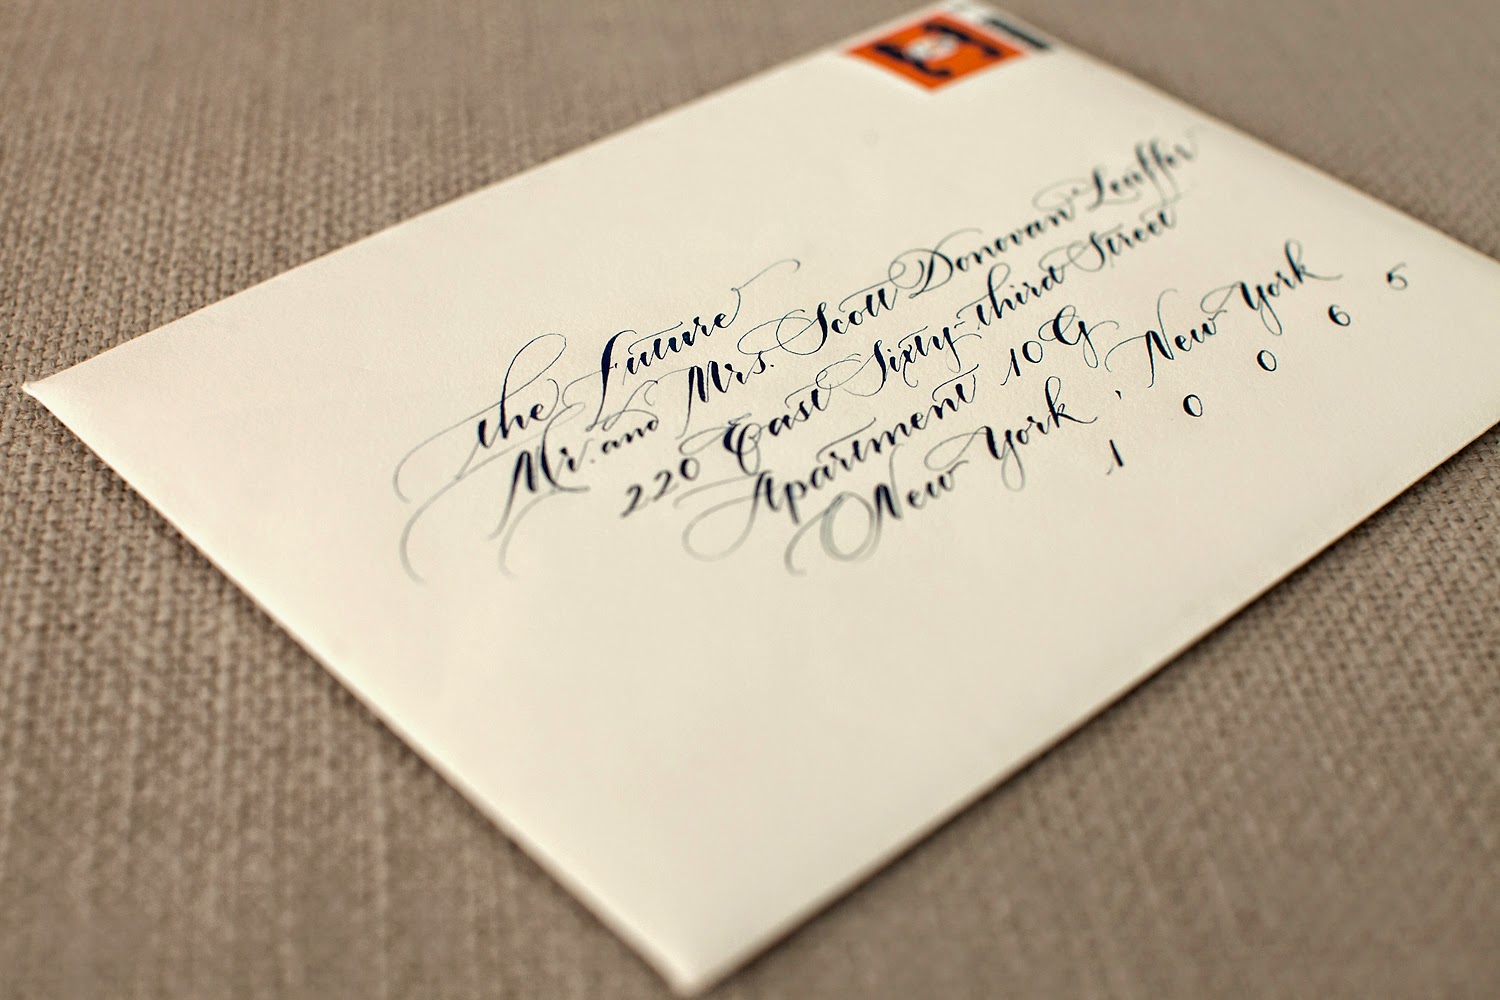 the Future
Mr. and Mrs. Scott Donovan Leuffer
220 East Sixty-third Street
Apartment 10 G
New York, New York
1 0 0 6 5